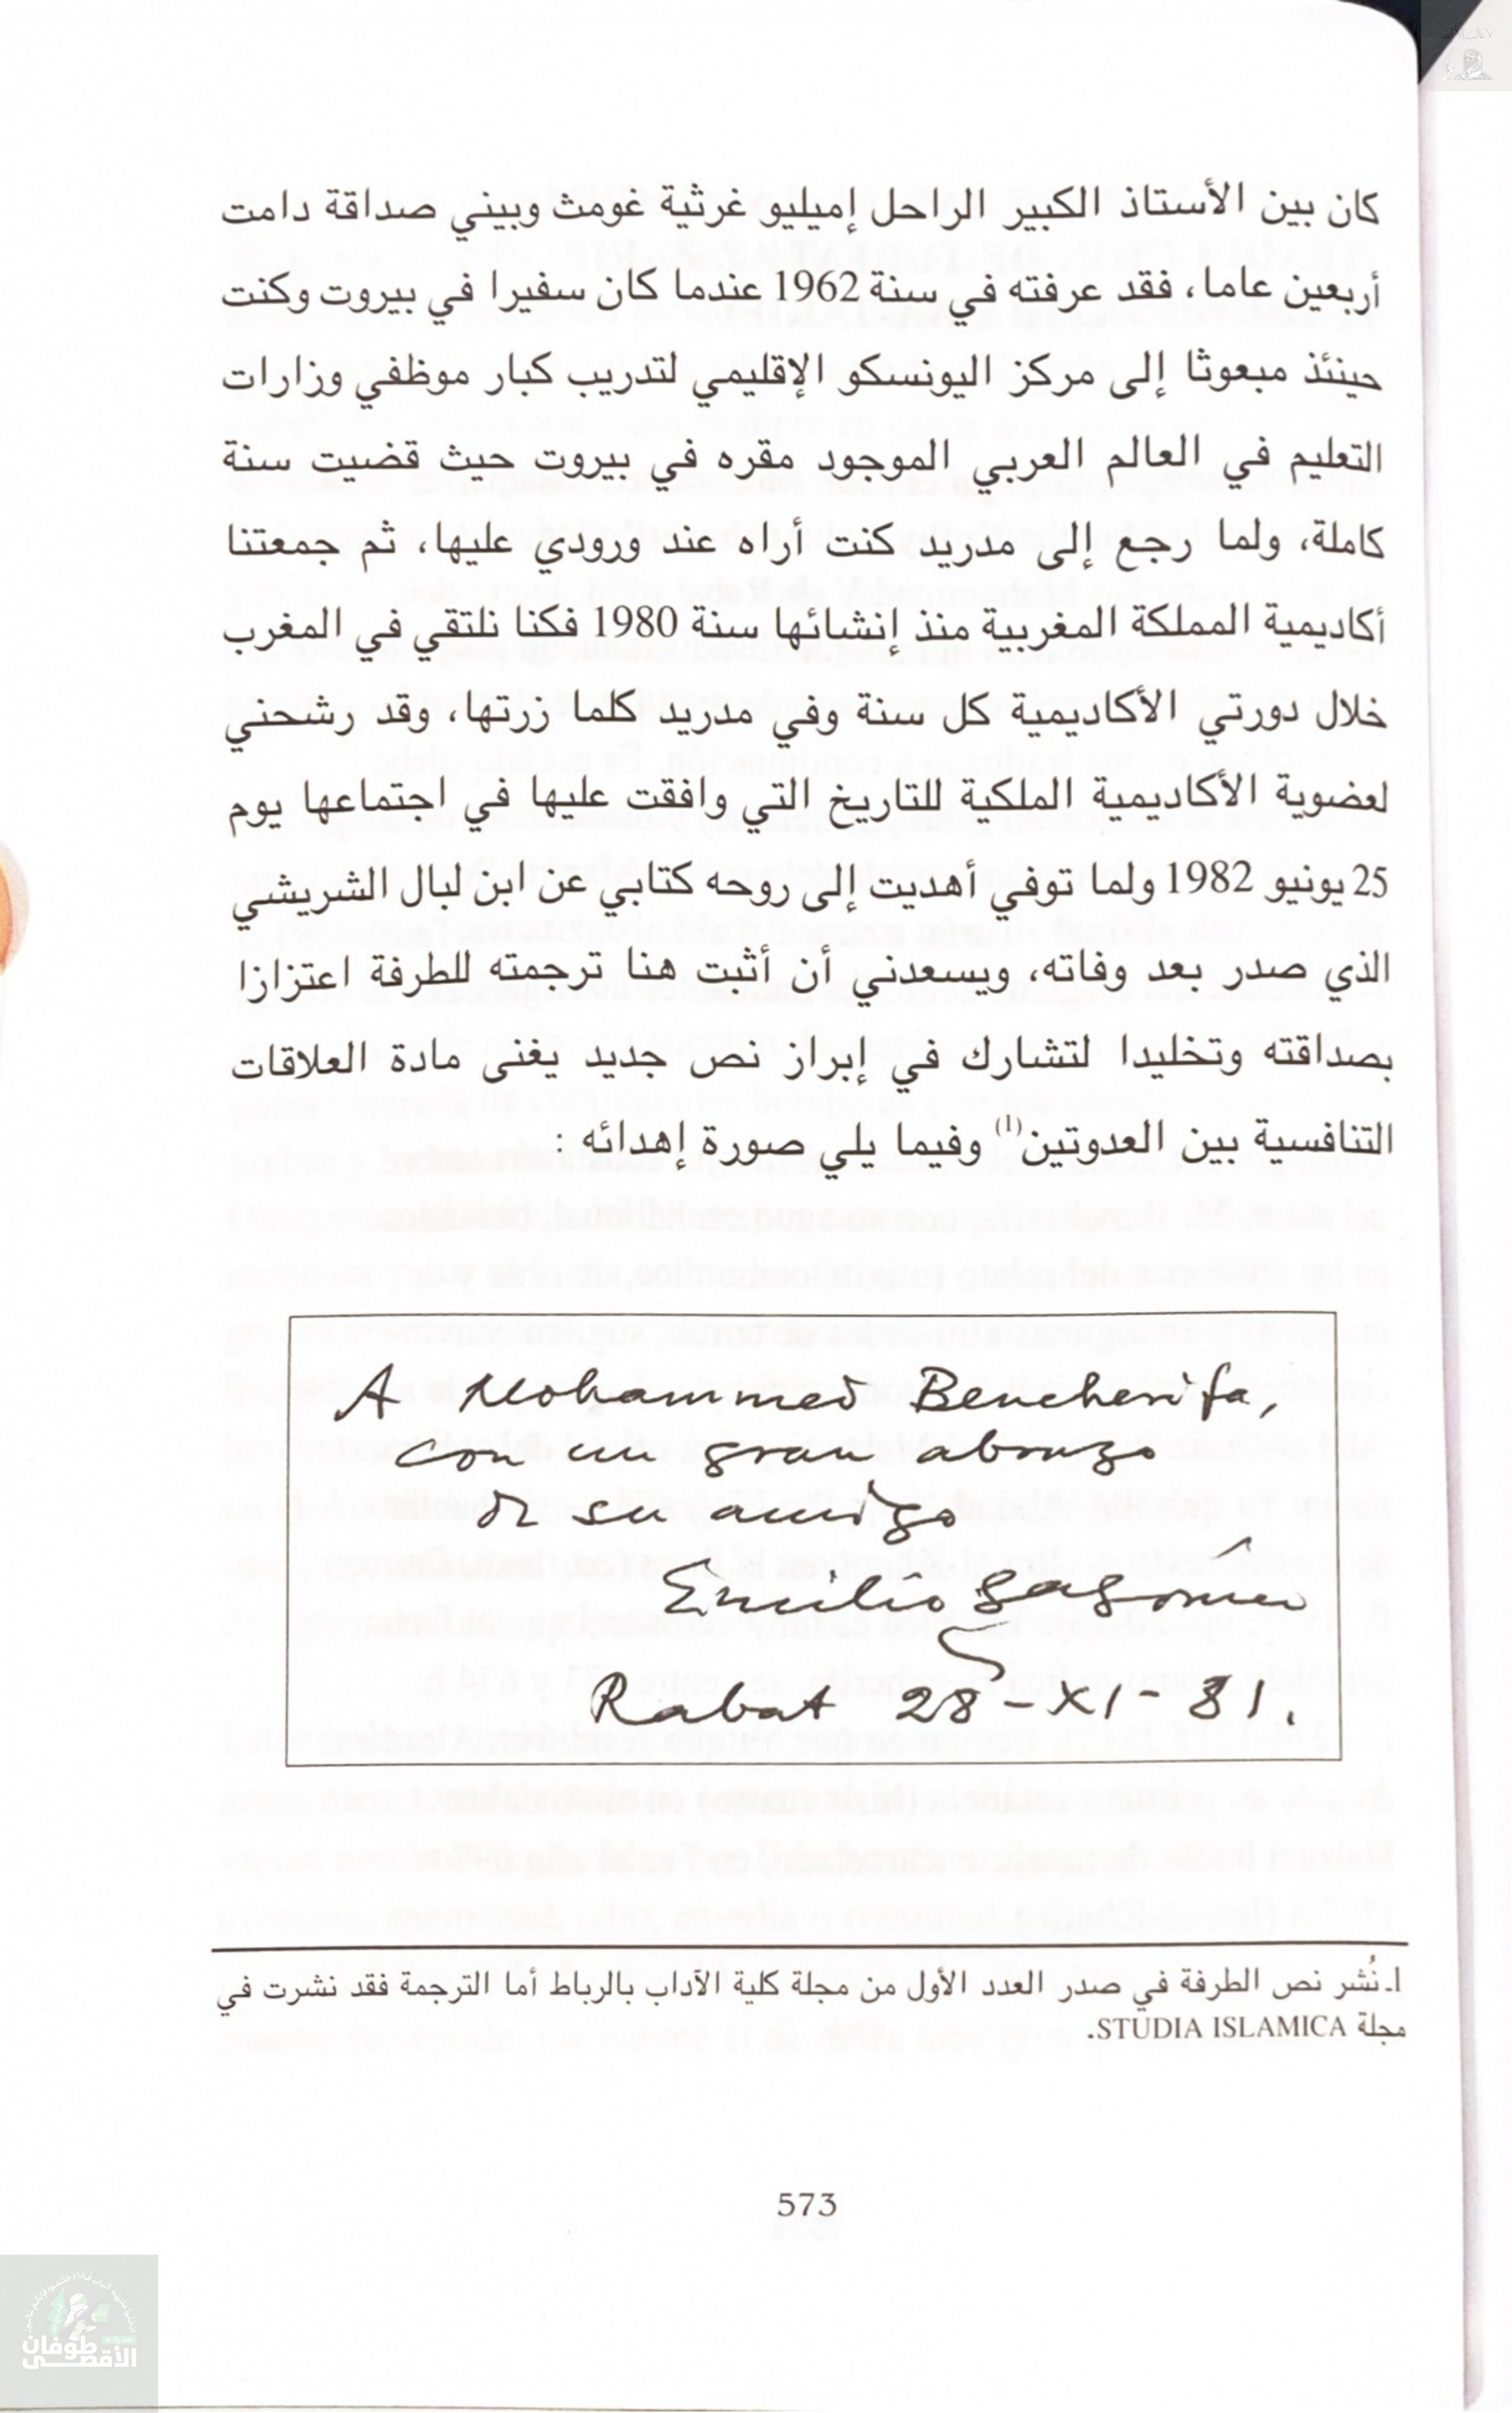 كان بين الأستاذ الكبير الراحل إميليو غرثية غومث وبيني صداقة دامت
أربعين عاما، فقد عرفته في سنة 1962 عندما كان سفيرا في بيروت وكنت
حينئذ مبعوثا إلى مركز اليونسكو الإقليمي لتدريب كبار موظفي وزارات
التعليم في العالم العربي الموجود مقره في بيروت حيث قضيت سنة
كاملة، ولما رجع إلى مدريد كنت أراه عند ورودي عليها، ثم جمعتنا
أكاديمية المملكة المغربية منذ إنشائها سنة 1980 فكنا نلتقي في المغرب
خلال دورتي الأكاديمية كل سنة وفي مدريد كلما زرتها، وقد رشحني
لعضوية الأكاديمية الملكية للتاريخ التي وافقت عليها في اجتماعها يوم
25 يونيو 1982 ولما توفي أهديت إلى روحه كتابي عن ابن لبال الشريشي
الذي صدر بعد وفاته، ويسعدني أن أثبت هنا ترجمته للطرفة اعتزازا
بصداقته وتخليدا لتشارك في إبراز نص جديد يغنى مادة العلاقات
التنافسية بين العدوتين(1) وفيما يلي صورة إهدائه :
A Mohammed Bencherifa,
con un gran abrazo
de su amigo
Emilio
Rabat 28-XI-81.
1ـ نُشر نص الطرفة في صدر العدد الأول من مجلة كلية الآداب بالرباط أما الترجمة فقد نشرت في
مجلة STUDIA ISLAMICA.
573
طوفان
الأقصى